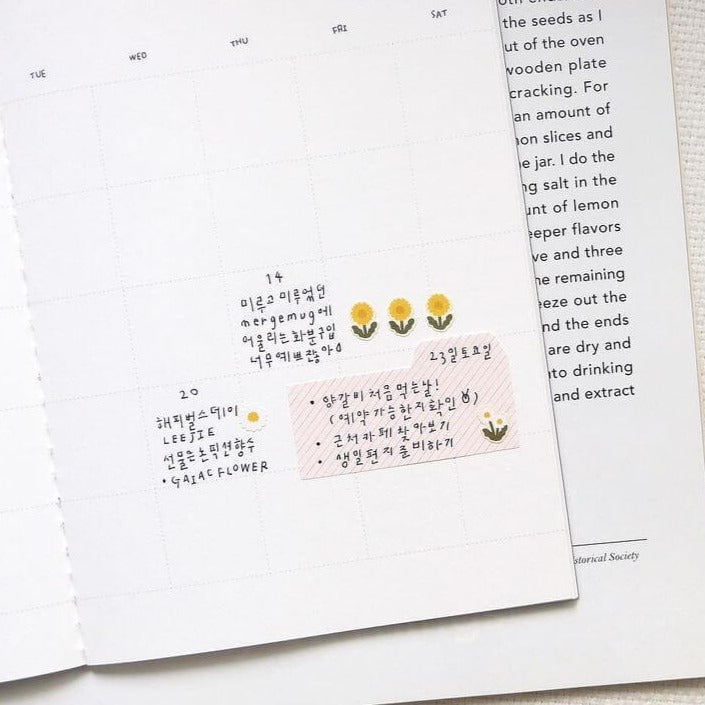 TUE
WED
THU
FRI
SAT
14
미루고 미루었던
mergemug에
어울리는 화분구입
너무예쁘잖아
20
해피벌스데이
LEEJIE
선물은논픽션향수
• GAIAC FLOWER
23일토요일
• 양갈비 처음 먹는날!
(예약 가능한지 확인)
• 근처카페 찾아보기
• 생일편지 준비하기
the seeds as I
ut of the oven
wooden plate
cracking. For
an amount of
on slices and
e jar. I do the
ng salt in the
unt of lemon
eeper flavors
ve and three
he remaining
eeze out the
nd the ends
are dry and
to drinking
and extract
storical Society